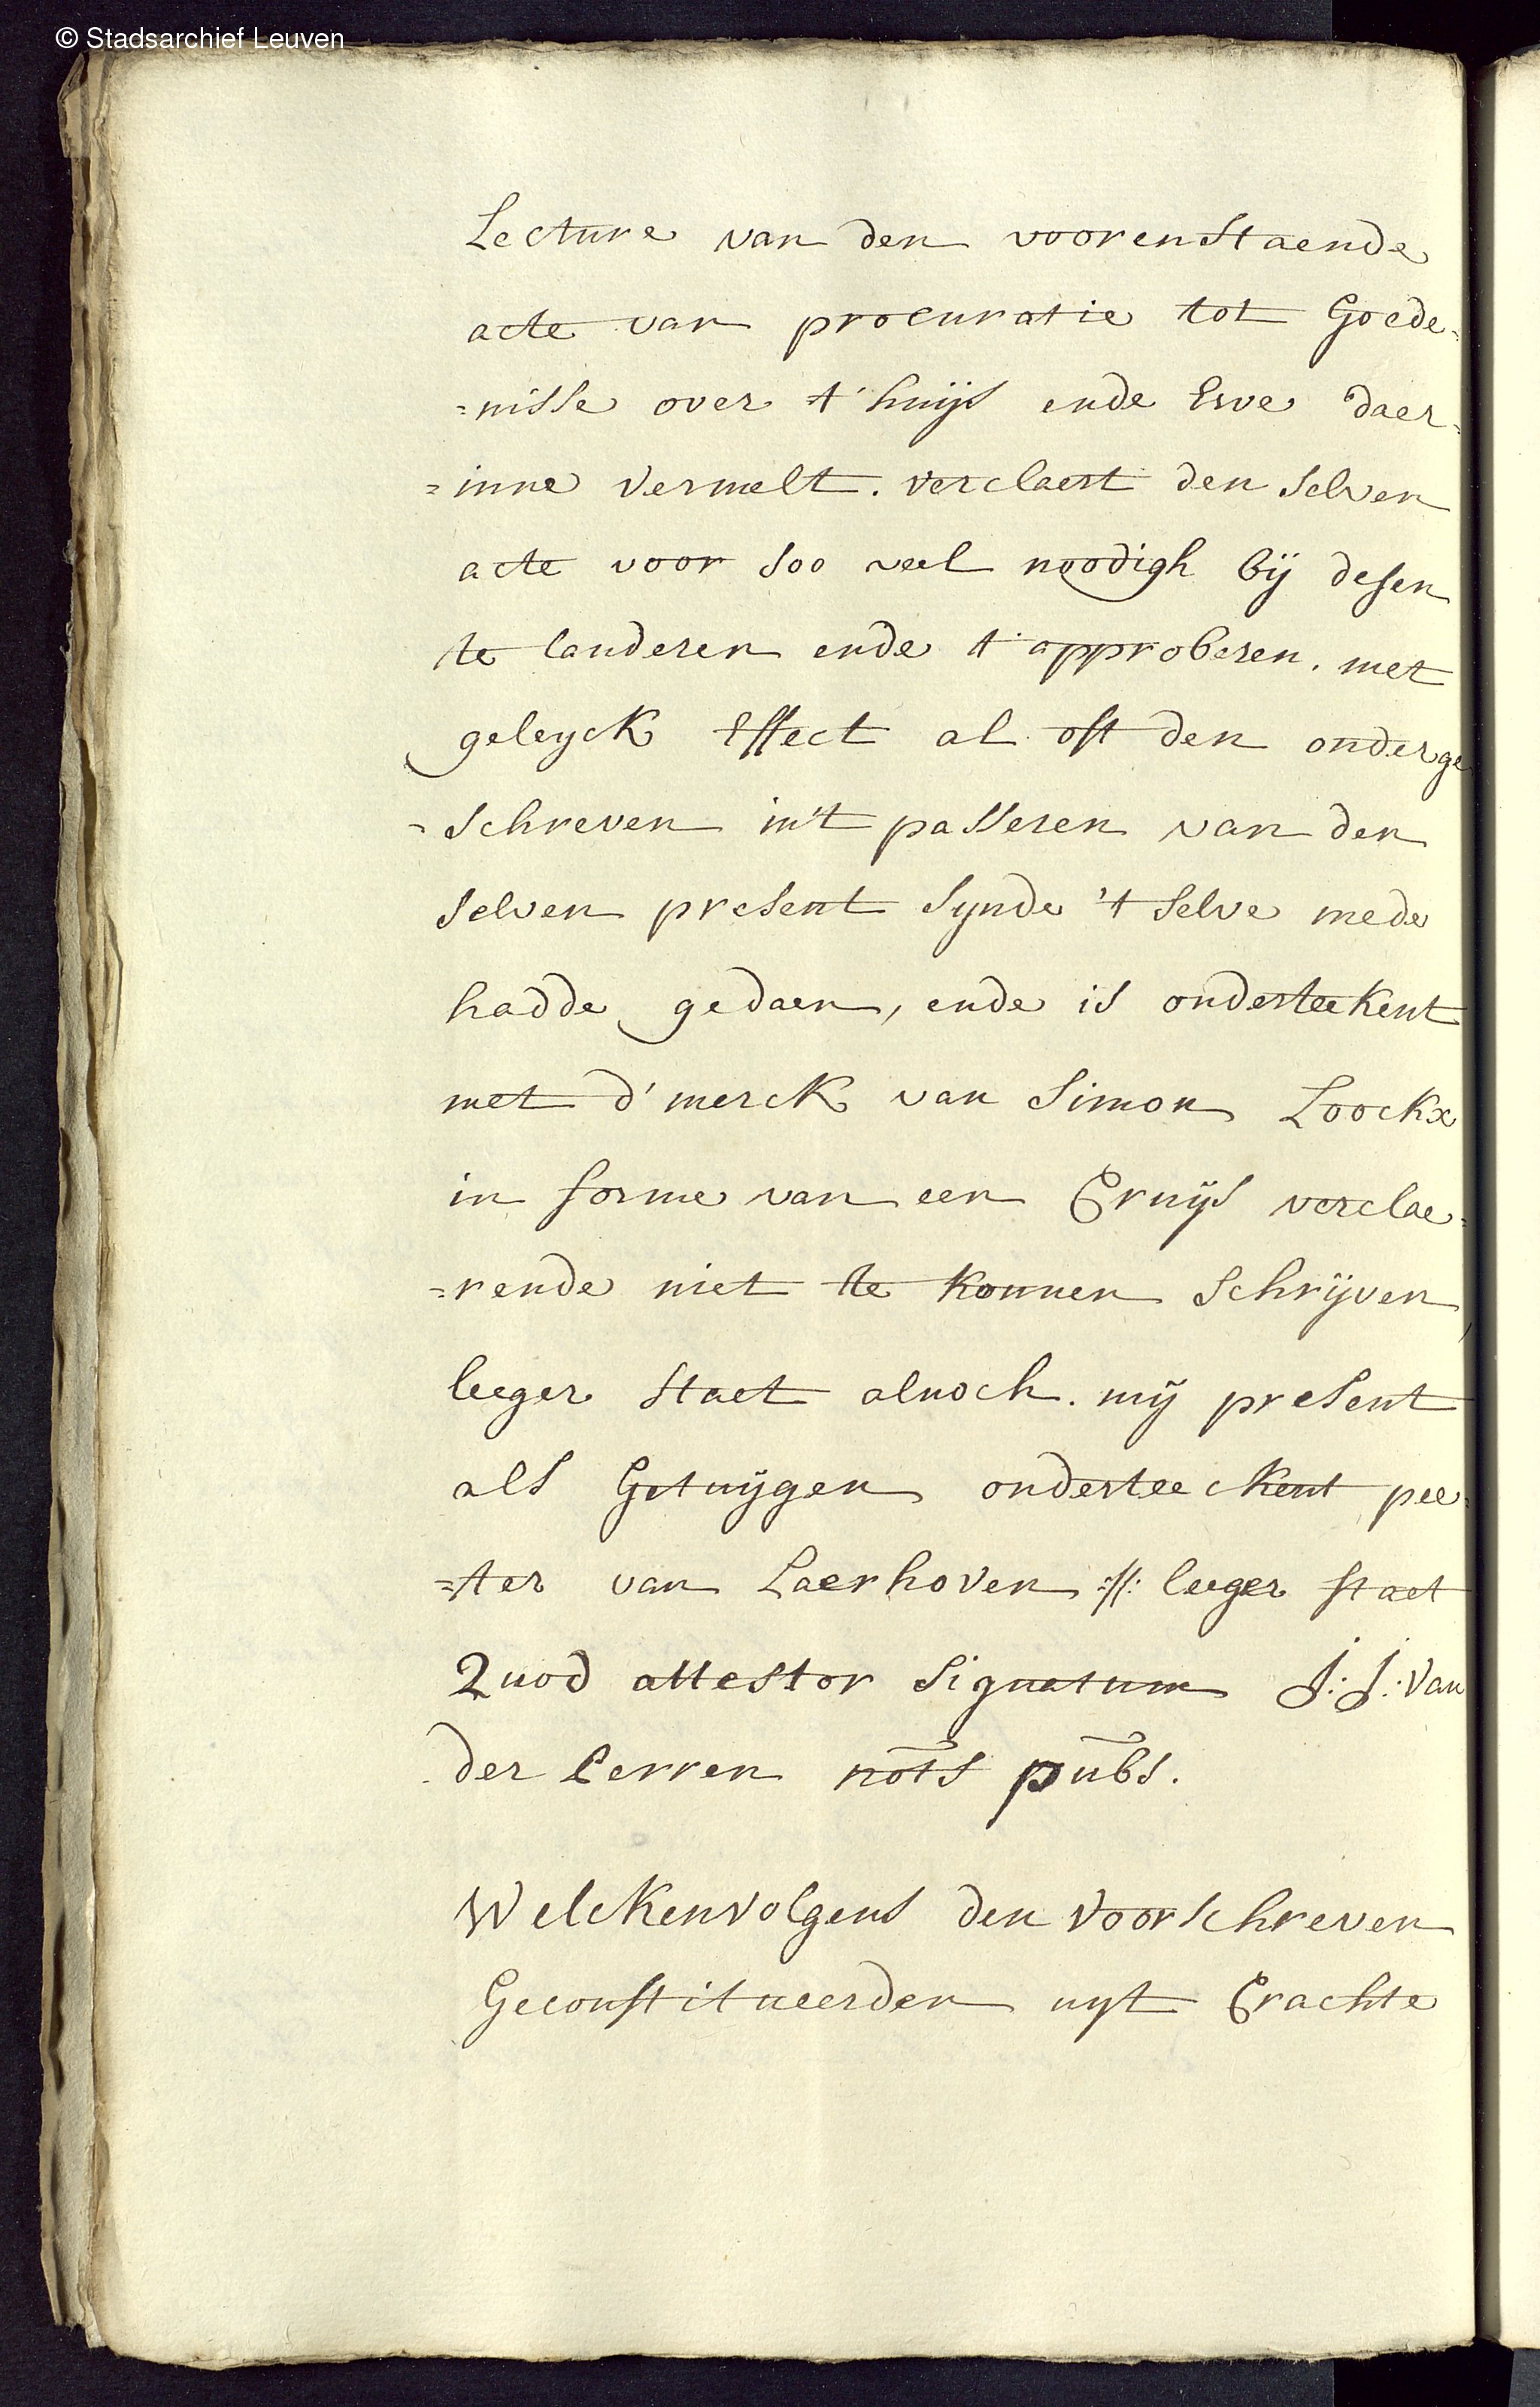 © Stadsarchief Leuven
Lecture van den voorenstaende
acte van procuratie tot Goede-
=nisse over t'huijs ende Erve daer=
=inne vermelt. verclaert den selven
acte voor soo veel noodigh bij desen
te landeren ende t'approberen. met
geleyck Effect al oft den onderge
-schreven in't passeren van den
selven present synde 't selve mede
hadde gedaen, ende is onderteekent
met d'merck van Simon Loockx
in forme van een Cruijs verclae=
=rende niet te konnen schrijven,
leeger staet alnoch. mij present
als Getuijgen onderteeckent pee=
=ter van Laerhoven :/: leeger staet
Quod attestor signatum J: J: van
der Cerren nots pubs.
Welckenvolgens den voorschreven
Geconstitueerden uyt Crachte